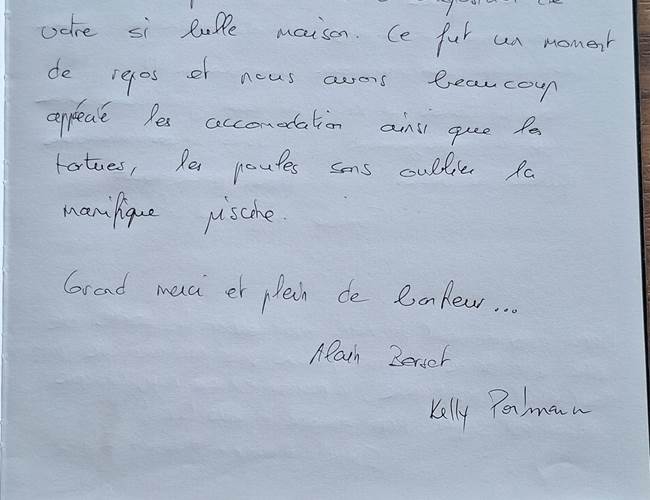 votre si belle maison. Ce fut un moment
de repos et nous avons beaucoup
apprécié les accomodation ainsi que les
tortues, les poules sans oublier la
manifique piscine.
Grand merci et plein de bonheur...
Alain Berset
Kelly Portmann